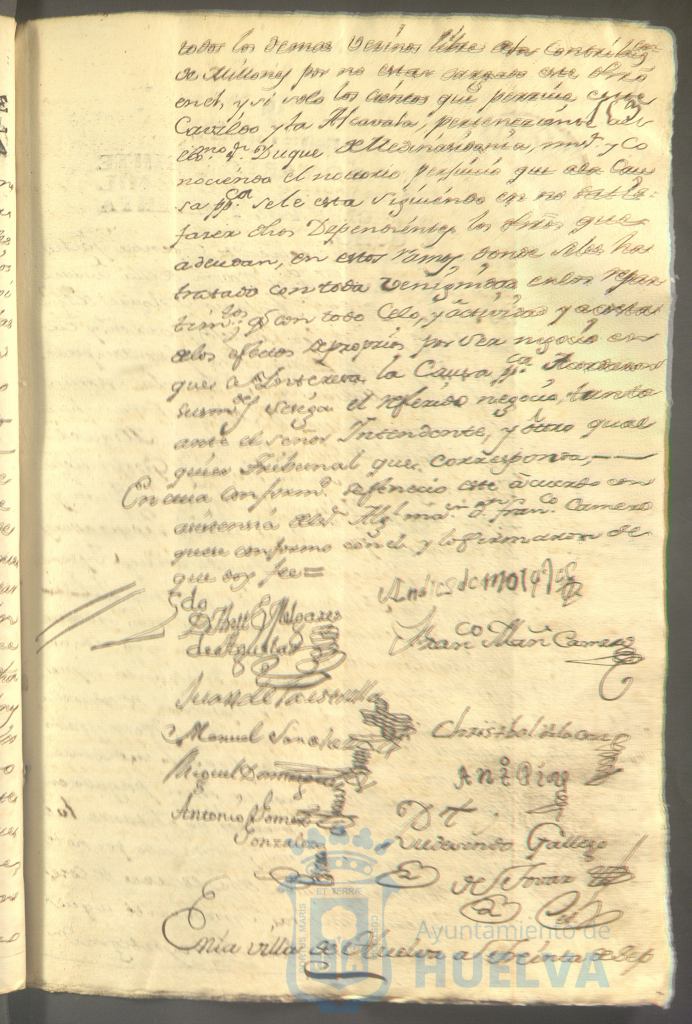 todos los demas Vezinos libre de la Contribuz.on
de Millones por no estar cargado este dro
en el, y si solo los cientos que percive este
Cavildo y la Alcavala, perteneziente al
Exmo. Sr. Duque de Medinasidonia, mi sr. y Co
nociendo el notorio perjuicio que a la Cau
sa pp.ca se le esta siguiendo en no
fazer dhos Dependientes los dros que
adeudan, en estos ramos donde se les ha
tratado con toda venignidad en los repar
tim.tos q.e con todo Celo, y actividad y a costa
de los efectos de propios por ser negocio en
que se Interesa la Causa pp.ca Acordaron
sus mrds se siga el referido negocio, tanto
ante el señor Intendente, y otro qual
quier Tribunal que corresponda, —
En cuia conform.d se fenecio este acuerdo con
asistencia del Alg.l mar.or Dn. Fran.co Camero
quien conformo con el y lo firmaron de
que doy fee=
Andres de mora
Ldo
Dn Melgarexo
de Aguilar
Fran.co Mar.n Camero
Juan de
Manuel Sanchez
Christobal de la Cruz
Miguel Dominguez
Ant.o Dias
Antonio Gomez
Gonzalez
Rudesindo Gallego
de Se Tovar
En la villa de Huelva a treinta de Sep
PORTUS MARIS
ET TERRÆ
CUSTODIA
Ayuntamiento de
HUELVA